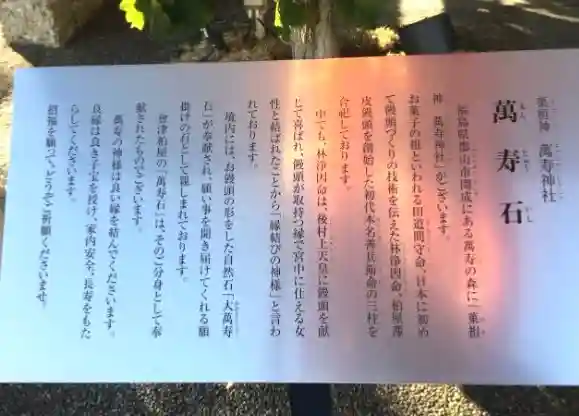 菓祖神 萬寿神社
萬寿石
まんじゅいし
福島県郡山市開成にある萬寿の森に「菓祖
神 萬寿神社」がございます。
お菓子の祖といわれる田道間守命、日本に初め
て饅頭づくりの技術を伝えた林浄因命、柏屋薄
皮饅頭を創始した初代本名善兵衛命の三柱を
合祀しております。
中でも、林浄因命は、後村上天皇に饅頭を献
じて喜ばれ、饅頭が取持つ縁で宮中に仕える女
性と結ばれたことから「縁結びの神様」と言わ
れております。
境内には、お饅頭の形をした自然石「大萬寿
石」が奉献され、願い事を聞き届けてくれる願
掛けの石として親しまれております。
會津柏屋の「萬寿石」は、そのご分身として奉
献されたものでございます。
萬寿の神様は良い縁を結んでくださいます。
良縁は良き子宝を授け、家内安全、長寿をもた
らしてくださいます。
招福を願って、どうぞご祈願くださいませ。